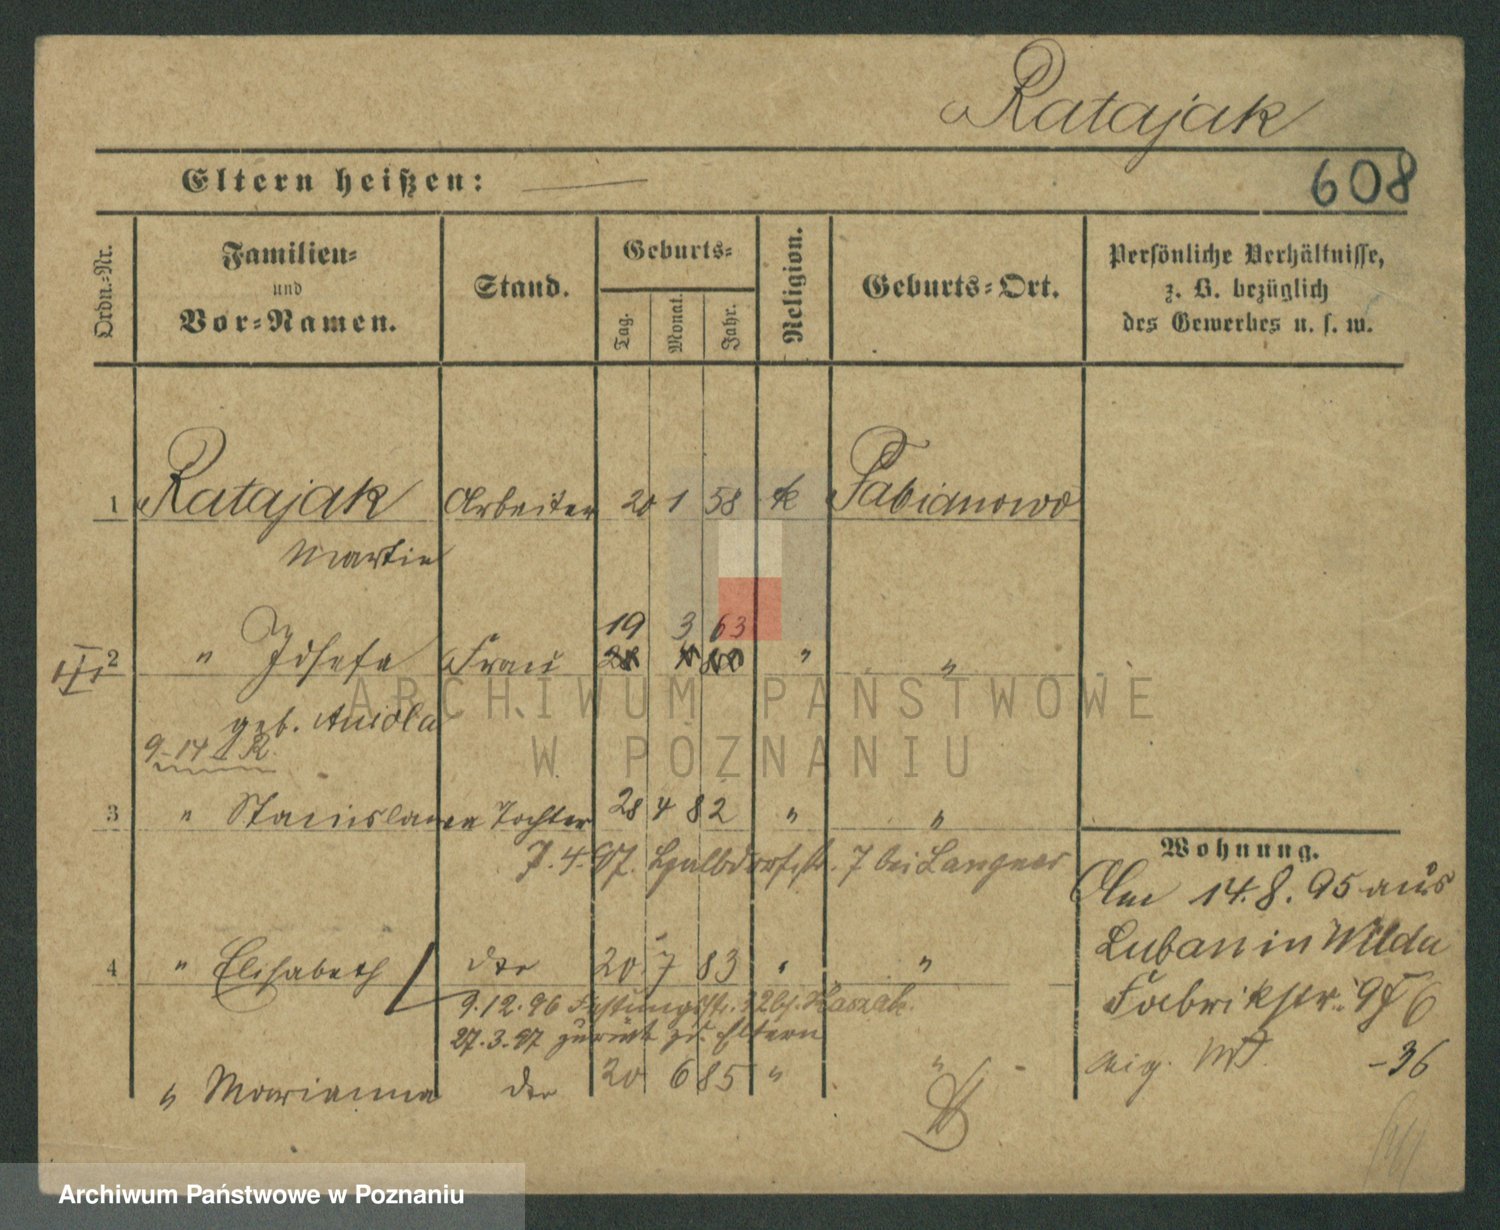 Ratajak
608
Eltern heißen: —
Ordn.-Nr.
Familien-
und
Vor-Namen.
Stand.
Geburts-
Tag.
Monat.
Jahr.
Religion.
Geburts-Ort.
Persönliche Verhältnisse,
z. B. bezüglich
des Gewerbes u. s. w.
1 Ratajak Arbeiter 20 1 58 k Fabianowo
Martin
19 3 63
2 " Josefa Frau " "
geb. Aniola
9-14 R.
3 " Stanislawa Tochter 28 4 82 " "
7.4.97. Halbdorfstr. 7 bei Langner
Wohnung.
Am 14.8.95 aus
Luban in Wilda
4 " Elisabeth dto 20 7 83 " "
9.12.96 Festungsstr. bei
Fabrikstr.
27.3.97 zurück zu Eltern
" Marianna dto 20 6 85 " "
-36
ARCHIWUM PAŃSTWOWE
W POZNANIU
Archiwum Państwowe w Poznaniu